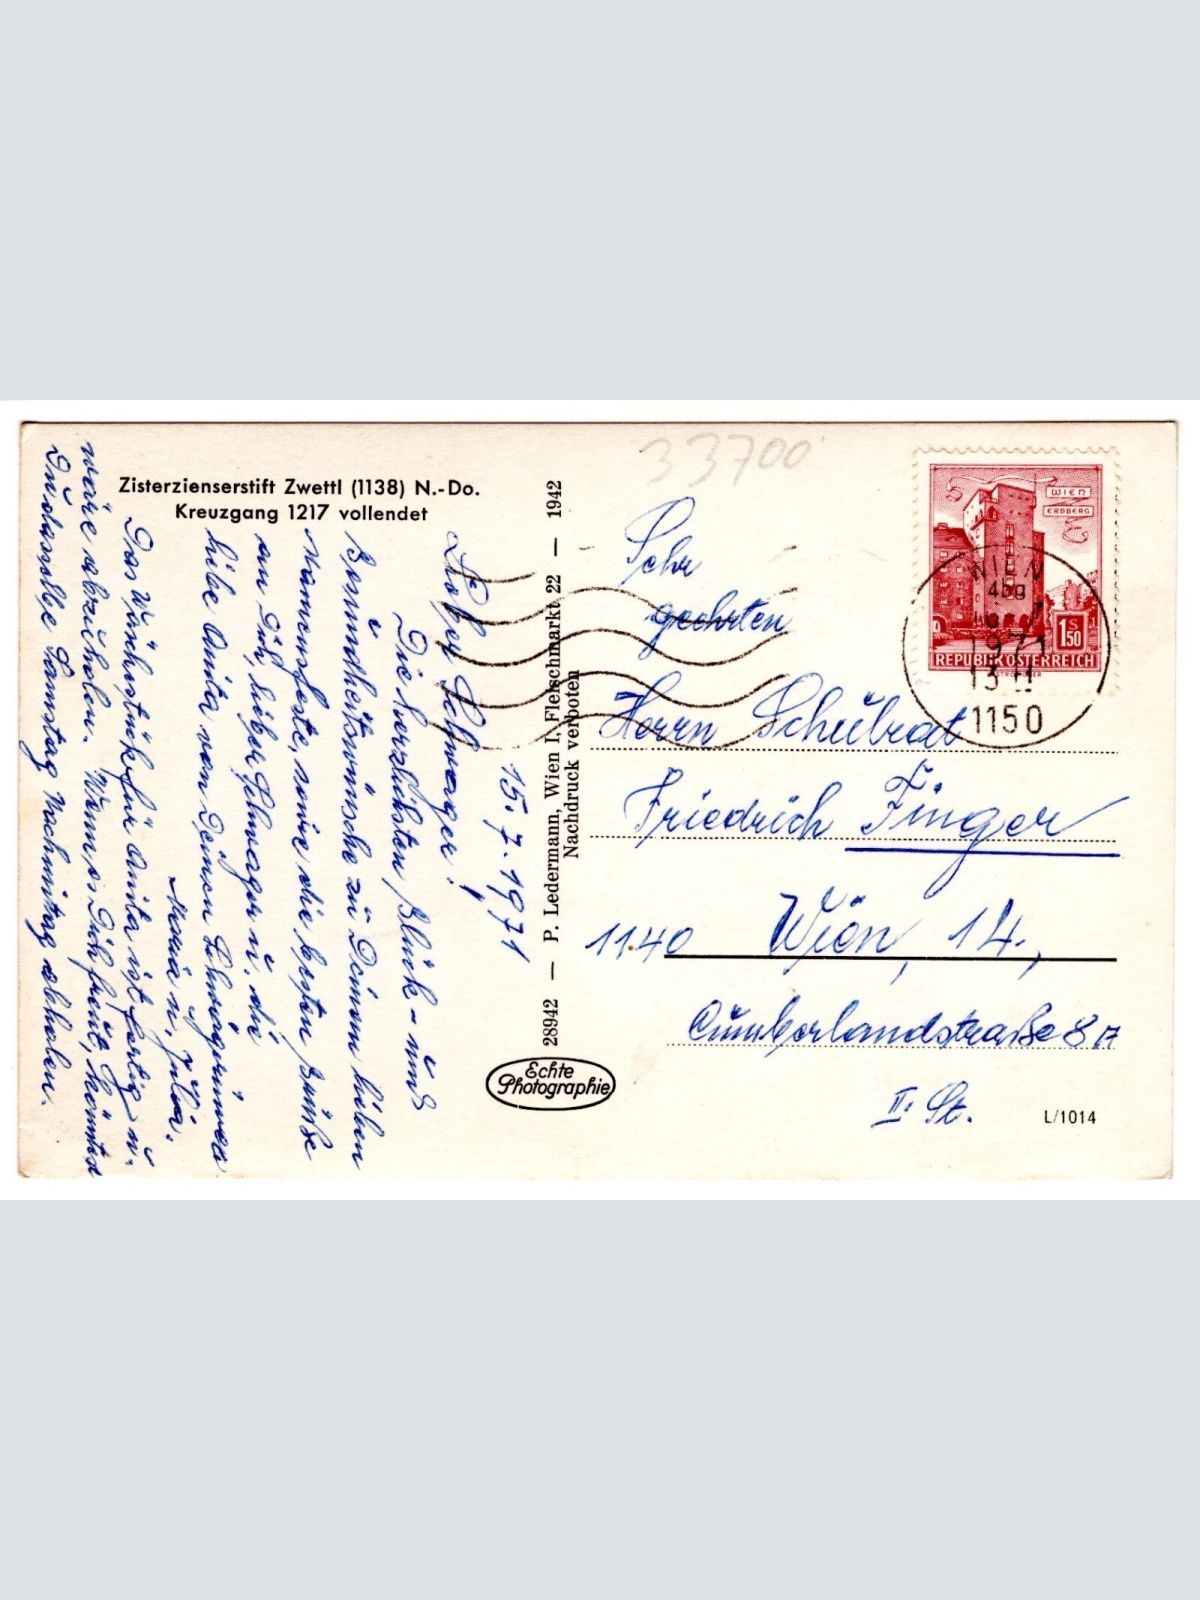 33700
Zisterzienserstift Zwettl (1138) N.-Do.
Kreuzgang 1217 vollendet
15.7.1971
Lieber Schwager!
Die herzlichsten Glück- und
Gesundheitswünsche zu Deinem lieben
Namensfeste, sowie die besten Grüße
an Dich, lieber Schwager u. die
liebe Anita von Deinen Schwägerinnen
Maria u. Julia.
Das Wäschestück für Anita ist fertig u.
wäre abzuholen. Wenn es Dich freut, könntest
Du dasselbe Samstag Nachmittag abholen.
28942 — P. Ledermann, Wien I, Fleischmarkt 22 — 1942
Nachdruck verboten
Echte
Photographie
WIEN
ERDBERG
1 S 50
REPUBLIK ÖSTERREICH
WIEN
1971
1150
Sehr
geehrten
Herrn Schulrat
Friedrich Finger
1140 Wien, 14.,
Cumberlandstraße 8A
II. St.
L/1014